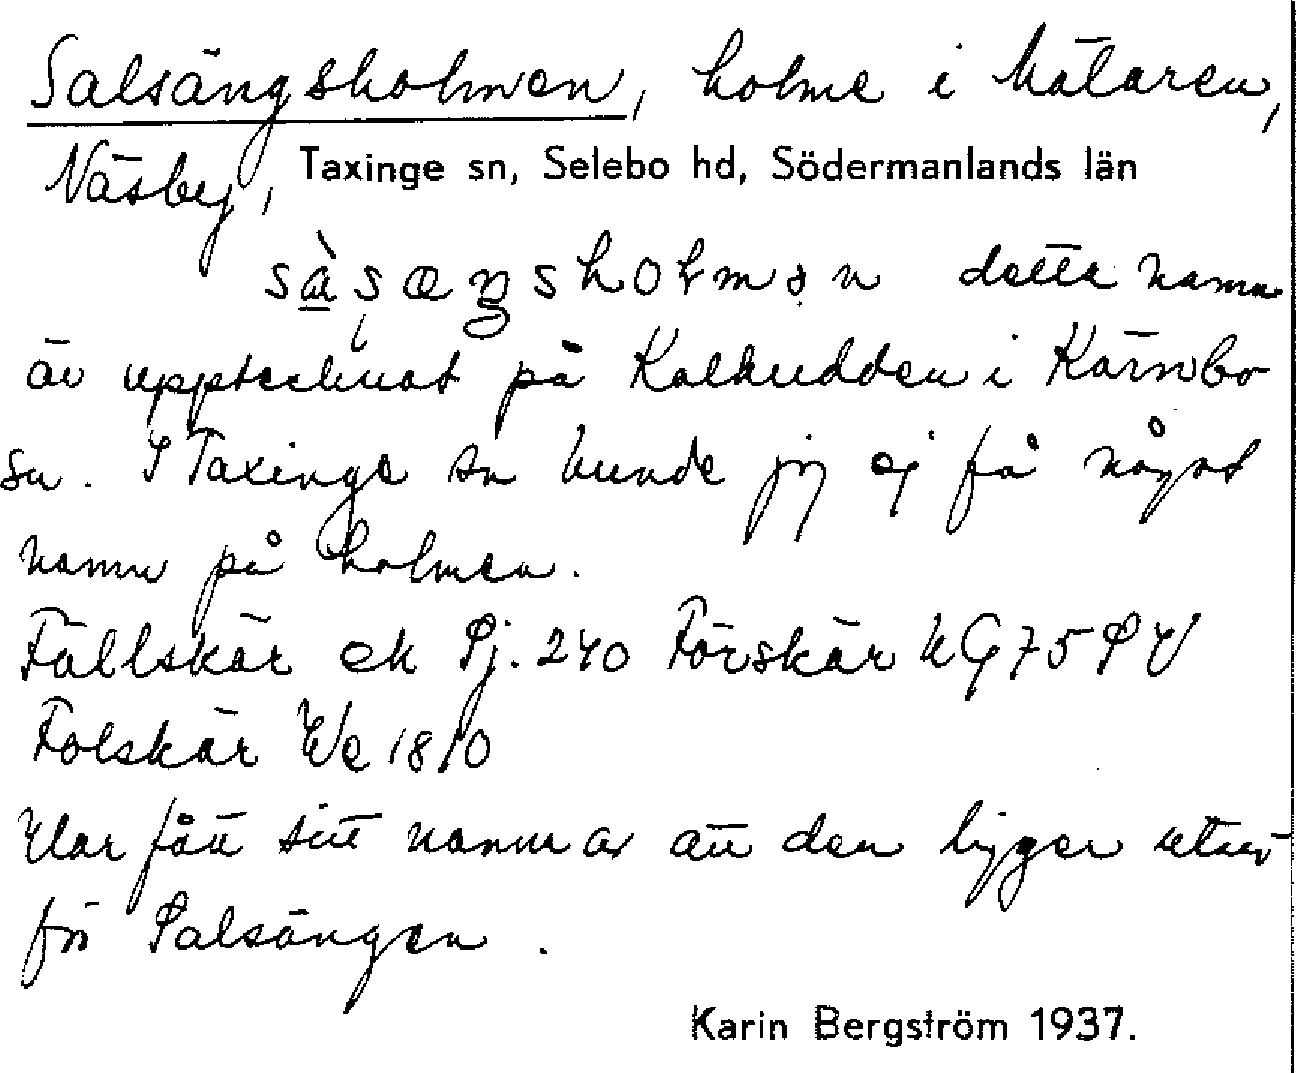 Salsängsholmen, holme i Mälaren,
Näsby, Taxinge sn, Selebo hd, Södermanlands län
detta namn
är upptecknat på Kalkudden i Kärnbo
sn. I Taxinge sn kunde jag ej få något
namn på holmen.
Fällskär ek Sj. 240 Förskär
Folskär We 1810
Har fått sitt namn av att den ligger utan-
för Salsängen.
Karin Bergström 1937.